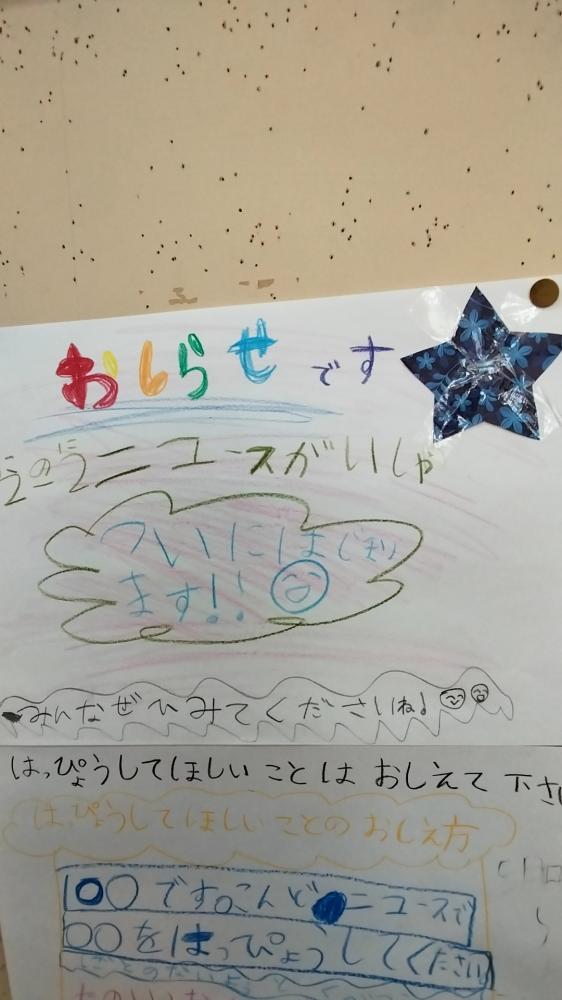 おしらせです
ニュースがいしゃ
ついにはじまり
ます!!
みんなぜひみてくださいね!
はっぴょうしてほしいことはおしえて下さ
はっぴょうしてほしいことのおしえ方
〇〇です。こんどニュースで
〇〇をはっぴょうしてください